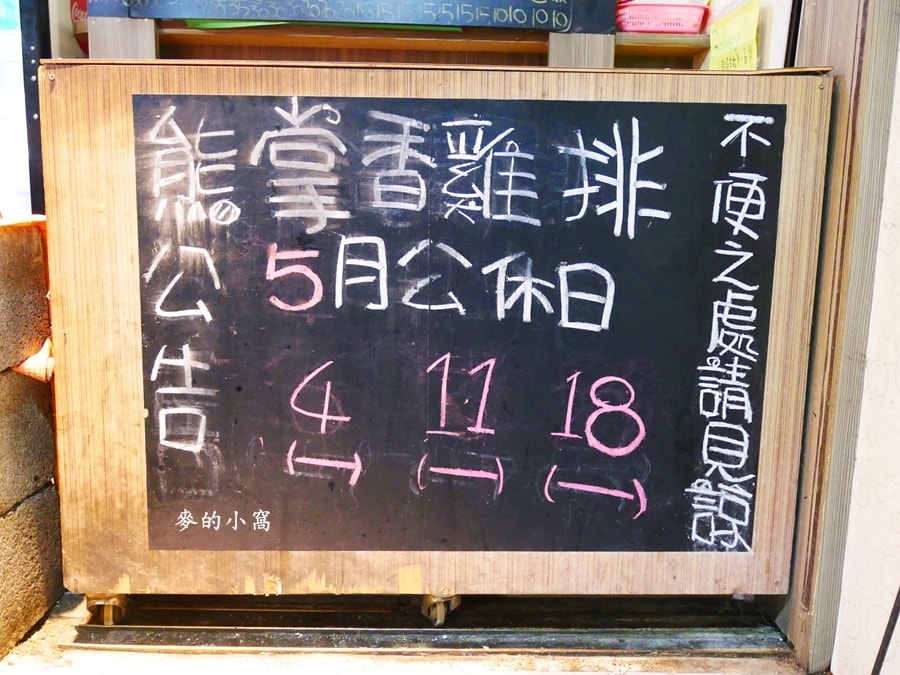 熊掌香雞排
公告
5月公休日
4 11 18
(一) (一) (一)
不便之處請見諒
麥的小窩